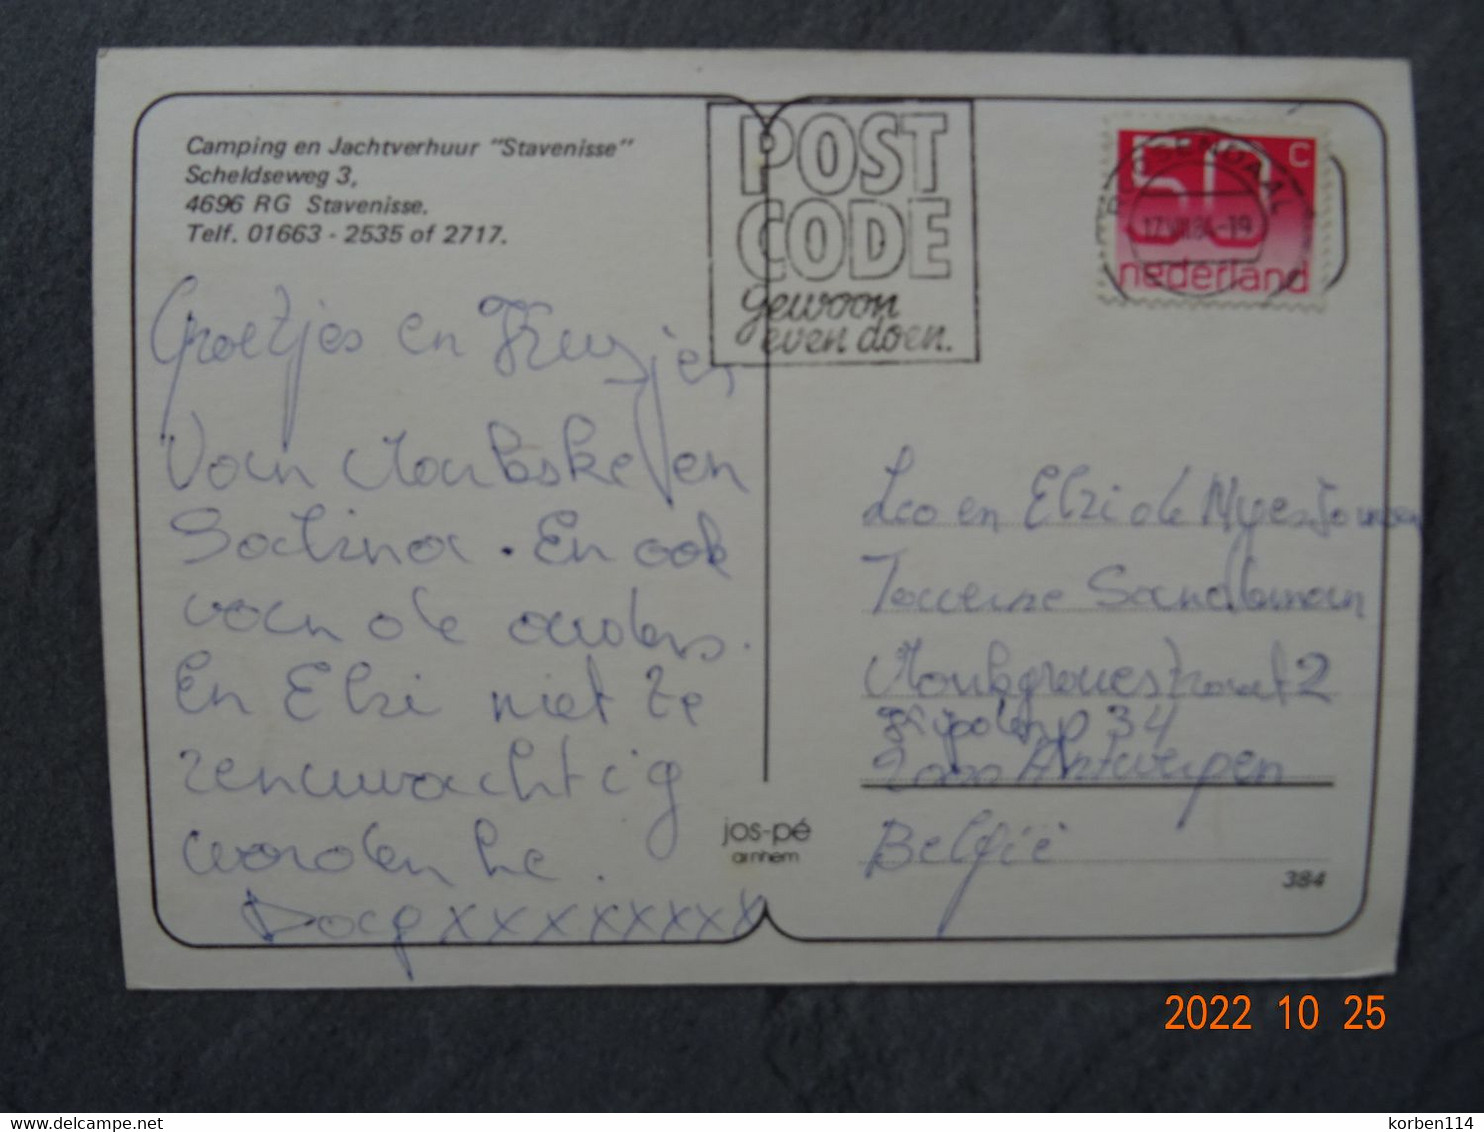 Camping en Jachtverhuur "Stavenisse"
Scheldseweg 3,
4696 RG Stavenisse.
Telf. 01663 - 2535 of 2717.
Groetjes en Kusjes
Van en
Satina. En ook
van de ouders.
En Elsi niet te
zenuwachtig
worden he.
Daag xxxxxxxx
POST
CODE
gewoon
even doen.
50 c
ROOSENDAAL
17.VII.84-19
nederland
Leo en Elsi de
Taverne Sandeman
2
34
2000 Antwerpen
België
jos-pé
arnhem
384
2022 10 25
korben114